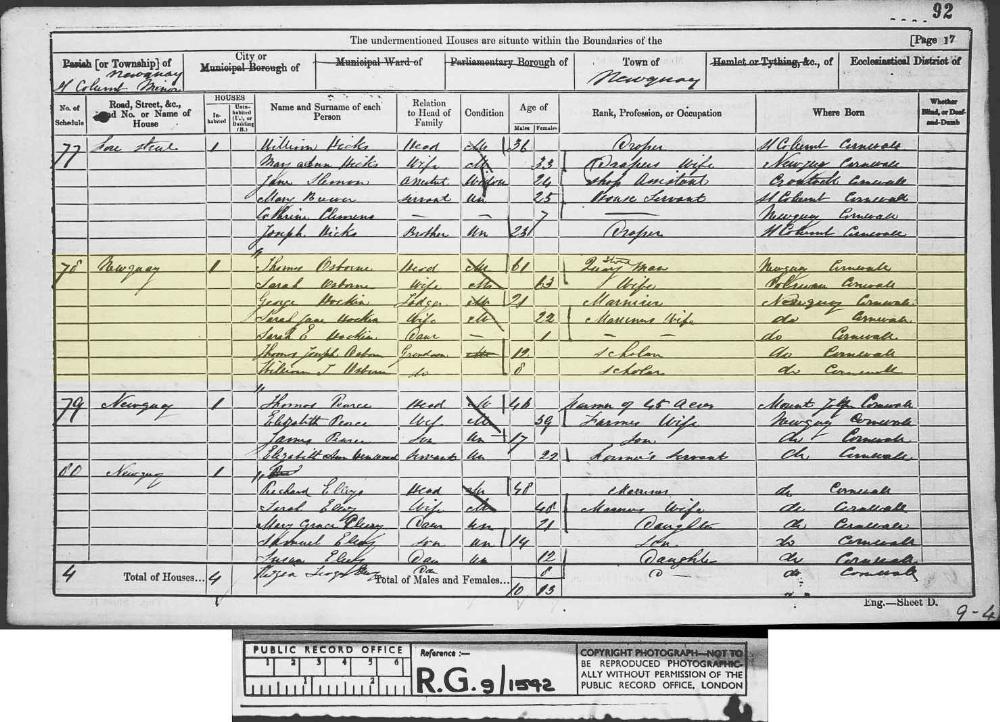 92
The undermentioned Houses are situate within the Boundaries of the
[Page 17
Parish [or Township] of
City or
Municipal Borough of
Municipal Ward of
Parliamentary Borough of
Town of
Hamlet or Tything, &c., of
Ecclesiastical District of
Newquay
St Columb Minor
Newquay
No. of Schedule
Road, Street, &c., and No. or Name of House
HOUSES
Inhabited
Uninhabited (U.), or Building (B.)
Name and Surname of each Person
Relation to Head of Family
Condition
Age of
Males
Females
Rank, Profession, or Occupation
Where Born
Whether Blind, or Deaf-and-Dumb
77 1 William Hicks Head M 36 Draper St Columb Cornwall
Mary Ann Hicks Wife M 33 Drapers Wife Newquay Cornwall
Jane Widow 24 Shop Assistant Cornwall
Mary Servant Un 25 House Servant St Columb Cornwall
Cathrine Clemens — — 7 — Newquay Cornwall
Joseph Hicks Brother Un 23 Draper St Columb Cornwall
78 Newquay 1 Thomas Osborne Head M 61 Man Newquay Cornwall
Sarah Osborne Wife M 63 Wife Cornwall
George Hockin Lodger M 21 Marinier Newquay Cornwall
Sarah Jane Hockin Wife M 22 Wife do Cornwall
Sarah E Hockin Daur — 1 — do Cornwall
Thomas Joseph Osborn Grandson 12 Scholar do Cornwall
William J Osborn do 8 Scholar do Cornwall
79 Newquay 1 Thomas Pearce Head M 46 Farmer of 45 Acres Mount Cornwall
Elizabeth Pearce Wife M 39 Farmers Wife Newquay Cornwall
James Pearce Son Un 17 Son do Cornwall
Elizabeth Ann Servant Un 22 Servant do Cornwall
80 Newquay 1 Richard Head M 48 do Cornwall
Sarah Wife M 48 Wife do Cornwall
Mary Grace Daur Un 21 Daughter do Cornwall
Samuel Son Un 14 Son do Cornwall
Susan Dau Un 12 Daughter do Cornwall
Dau 8 do Cornwall
4 Total of Houses... 4 Total of Males and Females... 10 13
Eng.—Sheet D.
9-4
PUBLIC RECORD OFFICE
1 2 3 4 5 6
Reference :—
R.G. 9/1592
COPYRIGHT PHOTOGRAPH—NOT TO
BE REPRODUCED PHOTOGRAPHIC-
ALLY WITHOUT PERMISSION OF THE
PUBLIC RECORD OFFICE, LONDON